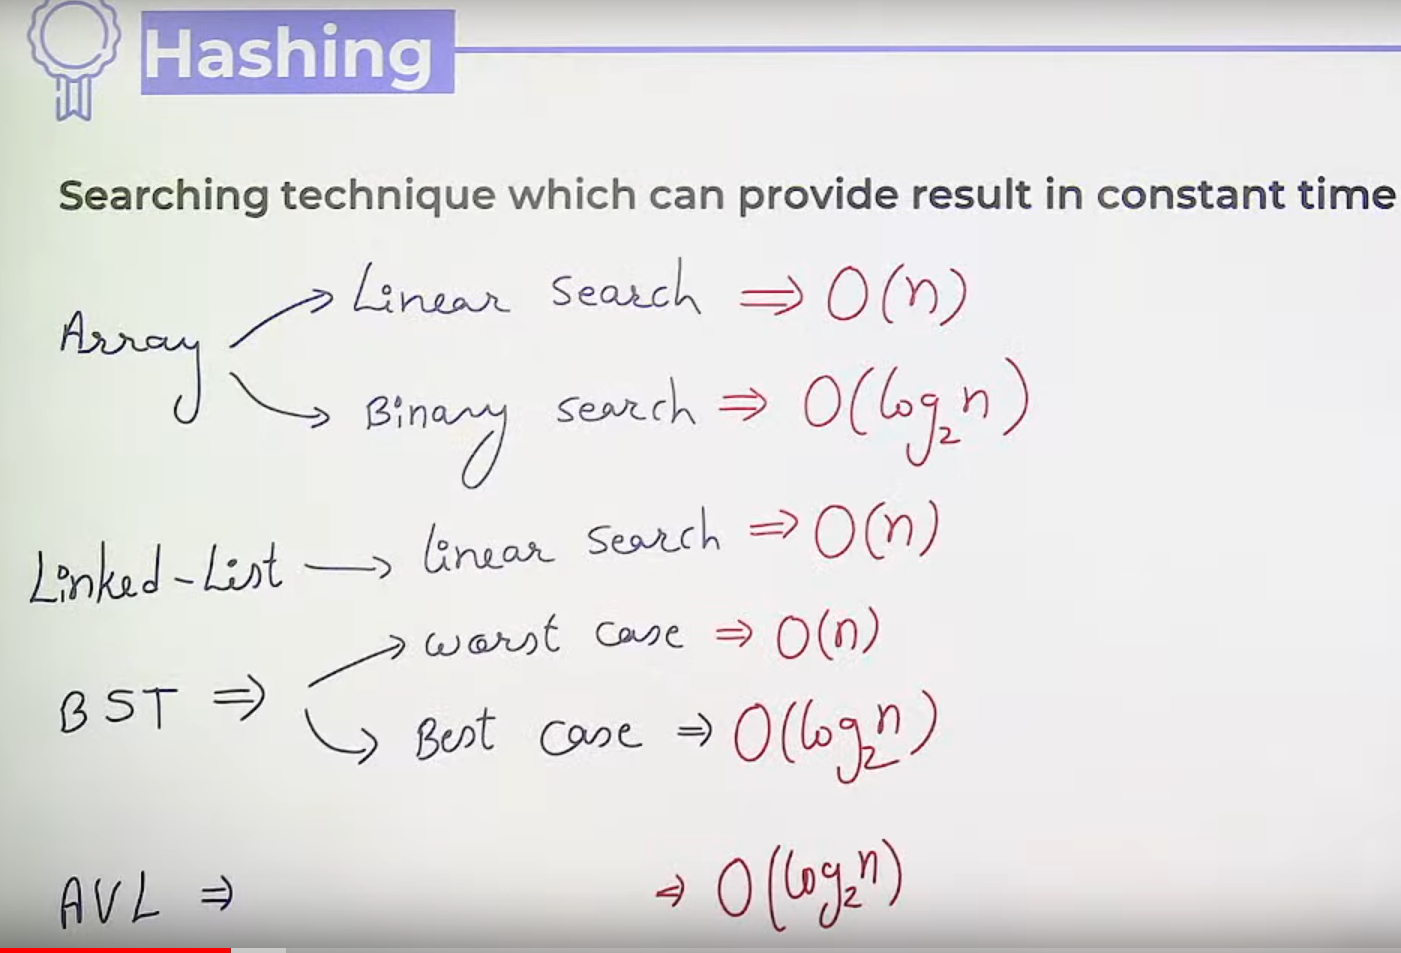 Hashing
Searching technique which can provide result in constant time
Array
→ Linear search ⇒ O(n)
→ Binary search ⇒ O(log₂n)
Linked-List → linear search ⇒ O(n)
BST ⇒
→ worst case ⇒ O(n)
→ Best case ⇒ O(log₂n)
AVL ⇒ ⇒ O(log₂n)